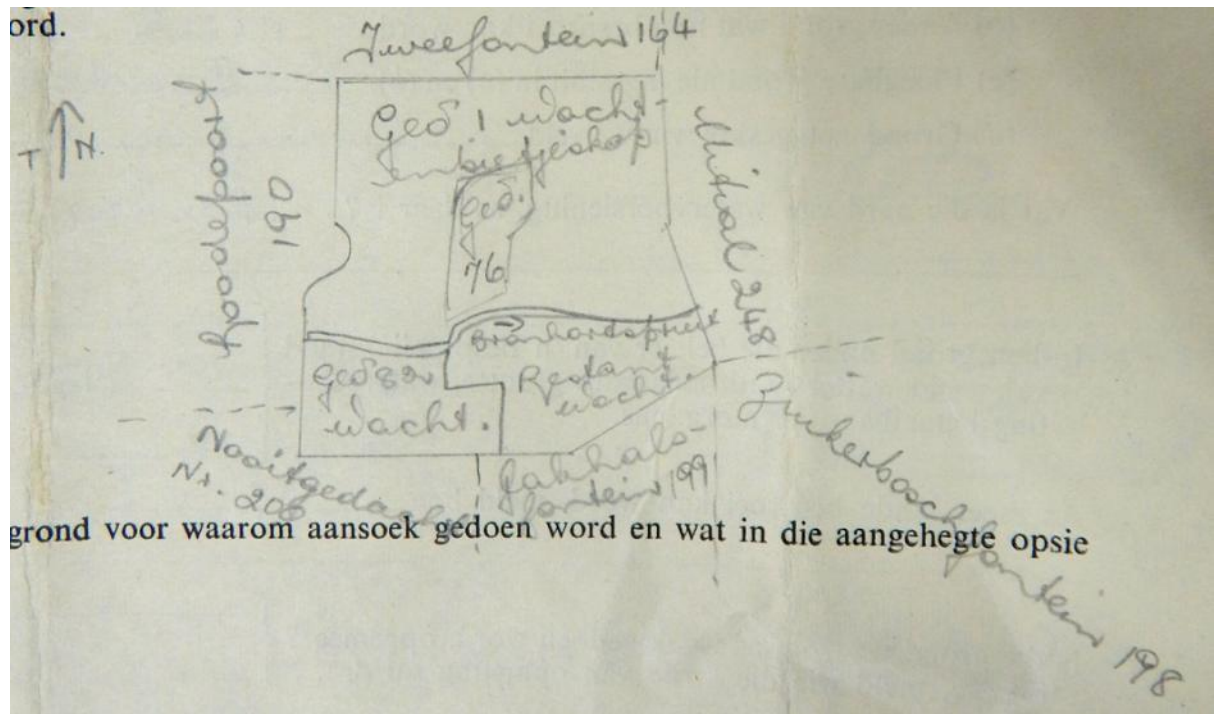 ord.
Tweefontein 164
T N.
Rodepoort
190
Ged 1 wacht-
enbietjeskop
Ged.
76
Mitval 248.
Ged
wacht.
Restant
wacht.
Nooitgedacht
Nr. 200
Jakhals-
fontein 199
Zuikerboschfontein 198.
grond voor waarom aansoek gedoen word en wat in die aangehegte opsie